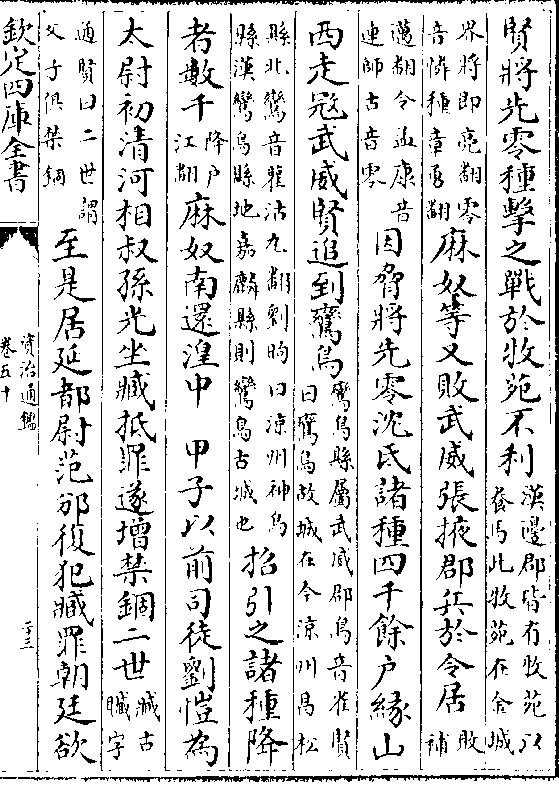 賢將先零種擊之戰於牧苑不利漢邊郡皆有牧苑以養馬此牧苑在金城
界將即亮翻零音憐種章勇翻麻奴等又敗武威張掖郡兵於令居敗補
邁翻令孟康音連師古音零因脅將先零沈氐諸種四千餘户緣山
西走宼武威賢追到鸞鳥鸞鳥縣屬武威郡鳥音雀賢曰鸞鳥故城在今涼州昌松
縣北鸞音雚沽九翻劉昫曰涼州神鳥縣漢鸞鳥縣地嘉麟縣則鸞鳥古城也招引之諸種降
者數千降户江翻麻奴南還湟中 甲子以前司徒劉愷為
太尉初清河相叔孫光坐臧抵罪遂增禁錮二世臧古贓字
通賢曰二世謂父子俱禁錮至是居延都尉范邠復犯臧罪朝廷欲
欽定四庫全書
資治通鑑
卷五十
二十三